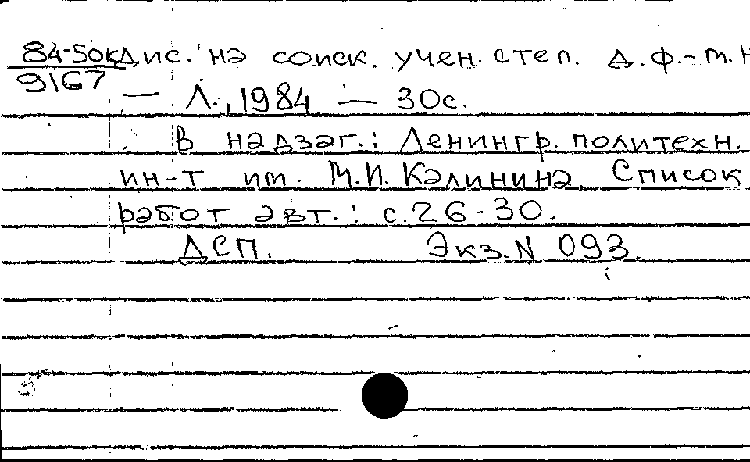 84-50к дис. на соиск. учен. степ. д.ф.-м.н
9167
— Л., 1984 — 30с.
В надзаг.: Ленингр. политехн.
ин-т им. М.И. Калинина. Список
работ авт.: с.26-30.
ДСП. Экз.N 093.